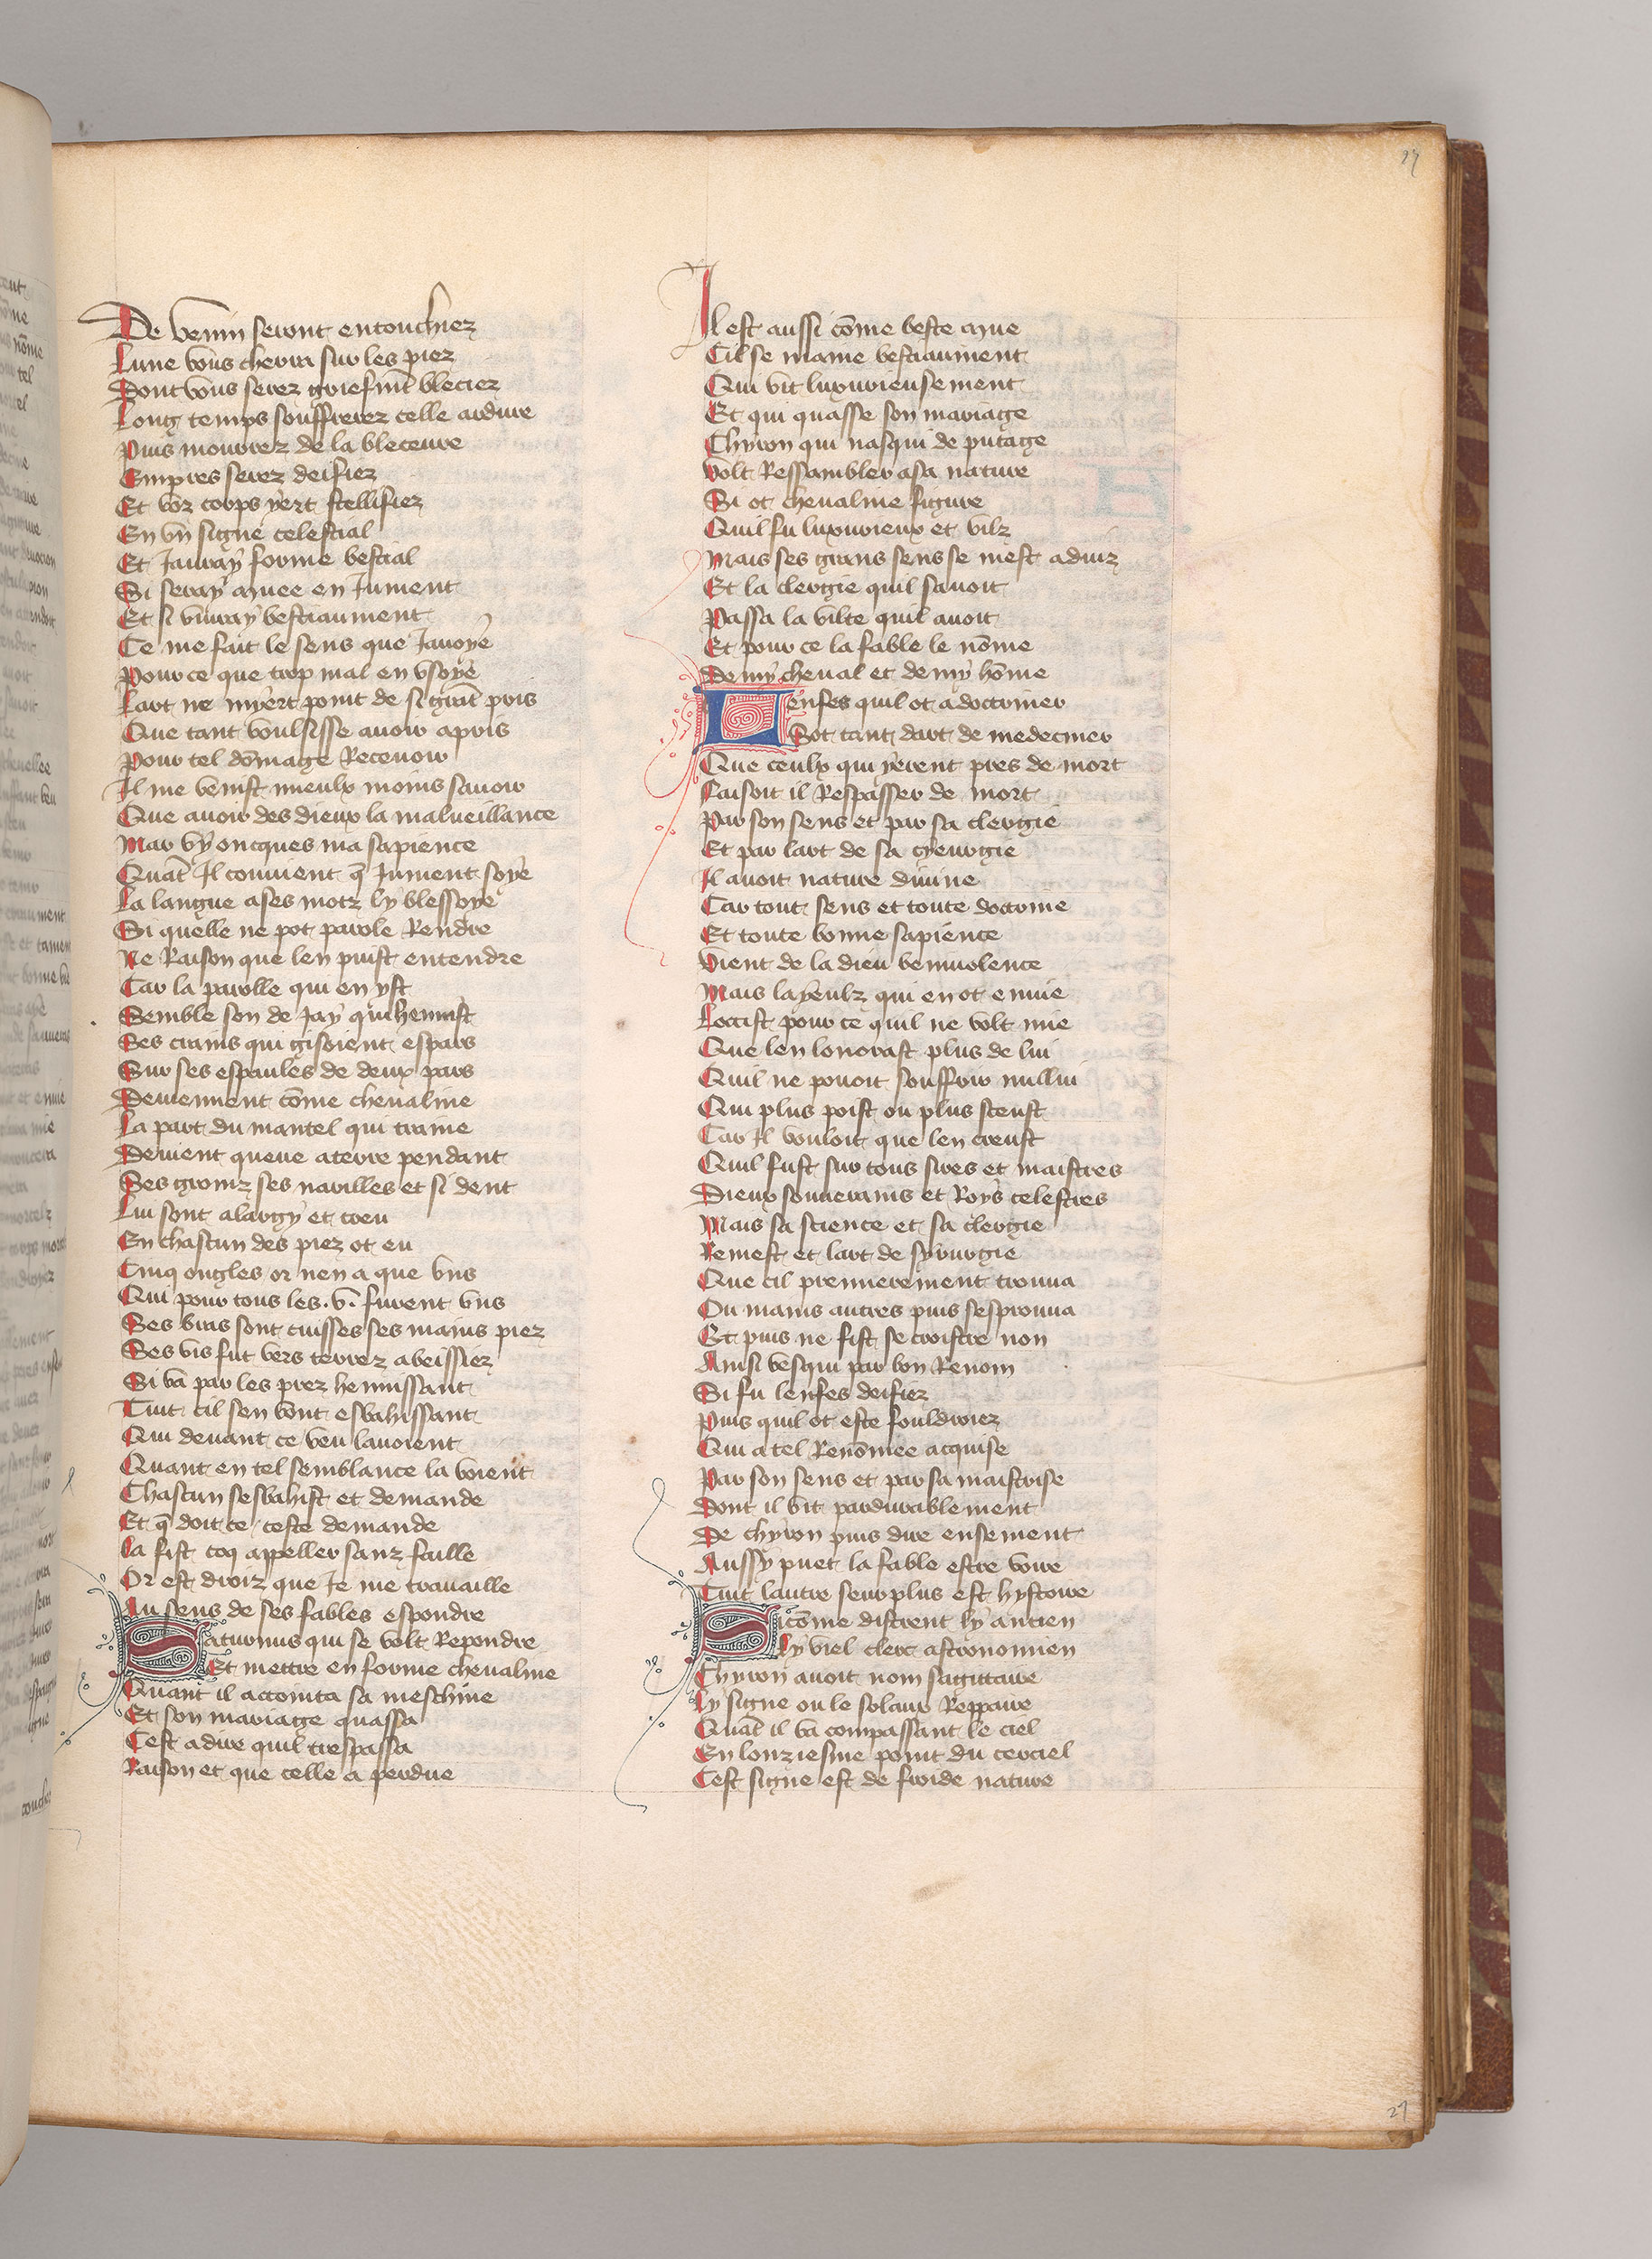 27
De venin seront entouchiez
Lune vous cherra sur les piez
Dont vous serez griefmt bleciez
Long temps souffrerez celle ardure
Puis mourrez de la bleceure
Empres serez deifiez
Et voz corps yert stellifiez
En vn signe celestial
Et Jauray forme bestial
Si seray muee en Jument
Et si viuray bestiaument
Ce me fait le sens que Jauoye
Pour ce que trop mal en vsoye
Lart ne myert point de si grat pris
Que tant voulsisse auoir apris
Pour tel dōmage Receuoir
Il me venist mieulx moins sauoir
Que auoir des dieux la malueillance
Mar vy oncques ma sapience
Quāt Il conuient q̄ Jument soye
La langue a ses motz ly blessoye
Si quelle ne pot parole Rendre
Ne Raison que len puist entendre
Car la parolle qui en yst
Semble son de Jay qui hennist
Ses crains qui gisoient espars
Sur ses espaules de deux pars
Deuiennent cōme cheualine
La part du mantel qui traine
Deuient queue a terre pendant
Ses groinz ses narilles et si dent
Lui sont alargy et creu
En chascun des piez ot eu
Cinq ongles or nen a que vns
Qui pour tous les .v. furent vns
Ses bras sont cuisses ses mains piez
Ses vis fut vers terrez abeissiez
Si va par les prez hennissant
Tuit cil sen vont esbahissant
Qui deuant ce veu lauoient
Quant en tel semblance la voient
Chascun sesbahist et demande
Et q̄ doit ce ceste demande
La fist coq appeller sanz faille
Or est droiz que Je me trauaille
Au sens de ses fables espondre
Saturnus qui se volt Repondre
Et mettre en forme cheualine
Quant il accointa sa meschine
Et son mariage quassa
Cest a dire quil trespassa
Raison et que celle a perdue
Il est aussi cōme beste mue
Cil se maine bestiaument
Qui vit luxurieusement
Et qui quasse son mariage
Chyron qui nasqui de putage
Volt Ressambler a sa nature
Si ot cheualine figure
Quil fu luxurieux et vilz
Mais ses grans sens se mest aduiz
Et la clergie quil sauoit
Passa la vilte quil auoit
Et pour ce la fable le nōme
Demy cheual et demy hōme
Lenfes quil ot a doctriner
Sot tant dart de medeciner
Que ceulx qui yerent pres de mort
Faisoit il Respasser de mort
Par son sens et par sa clergie
Et par lart de sa cyrurgie
Il auoit nature diuine
Car tout sens et toute doctrine
Et toute bonne sapience
Vient de la dieu beniuolence
Mais layeulz qui en ot enuie
Loccist pour ce quil ne volt mie
Que len lonorast plus de lui
Quil ne pouoit souffrir nullui
Qui plus poist ou plus sceust
Car Il vouloit que len creust
Quil fust sur tous sires et maistres
Dieux souuerains et Roys celestres
Mais sa science et sa clergie
Remest et lart de syrurgie
Que cil premierement trouua
Ou mains autres puis sesprouua
Et puis ne fist se croistre non
Ainsi vesqui par bon Renom
Si fu lenfes deifiez
Puis quil ot este fouldroiez
Qui a tel Renōmee acquise
Par son sens et par sa maistrise
Dont il vit pardurablement
De chyron puis dire ensement
Aussy puet la fable estre voire
Tuit lautre seurplus est hystoire
Sicōme distrent ly ancien
Ly viel clerc astronomien
Chyron auoit nom sagittaire
Ly signe ou le solaux Reppaire
Quāt il va compassant le ciel
En lonziesme point du cerciel
Cest signe est de froide nature
27